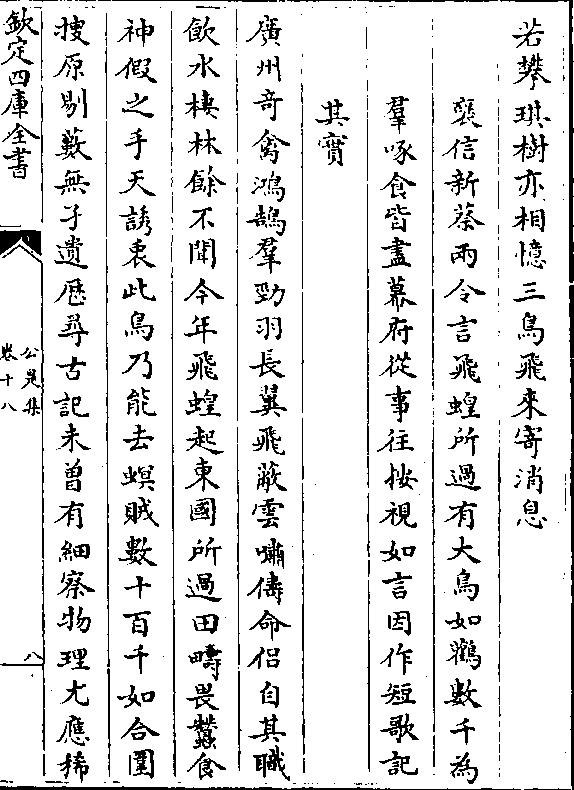 若攀琪樹亦相憶三鳥飛來寄消息
褒信新蔡兩令言飛蝗所過有大鳥如鸛數千為
羣啄食皆盡幕府從事往按視如言因作短歌記
其實
廣州奇禽鴻鵠羣勁羽長翼飛蔽雲嘯儔命侶自其職
飲水棲林餘不聞今年飛蝗起東國所過田疇畏蠶食
神假之手天誘衷此鳥乃能去螟賊數十百千如合圍
搜原剔藪無孑遺歷尋古記未曾有細察物理尤應稀
欽定四庫全書
公是集
卷十八
八